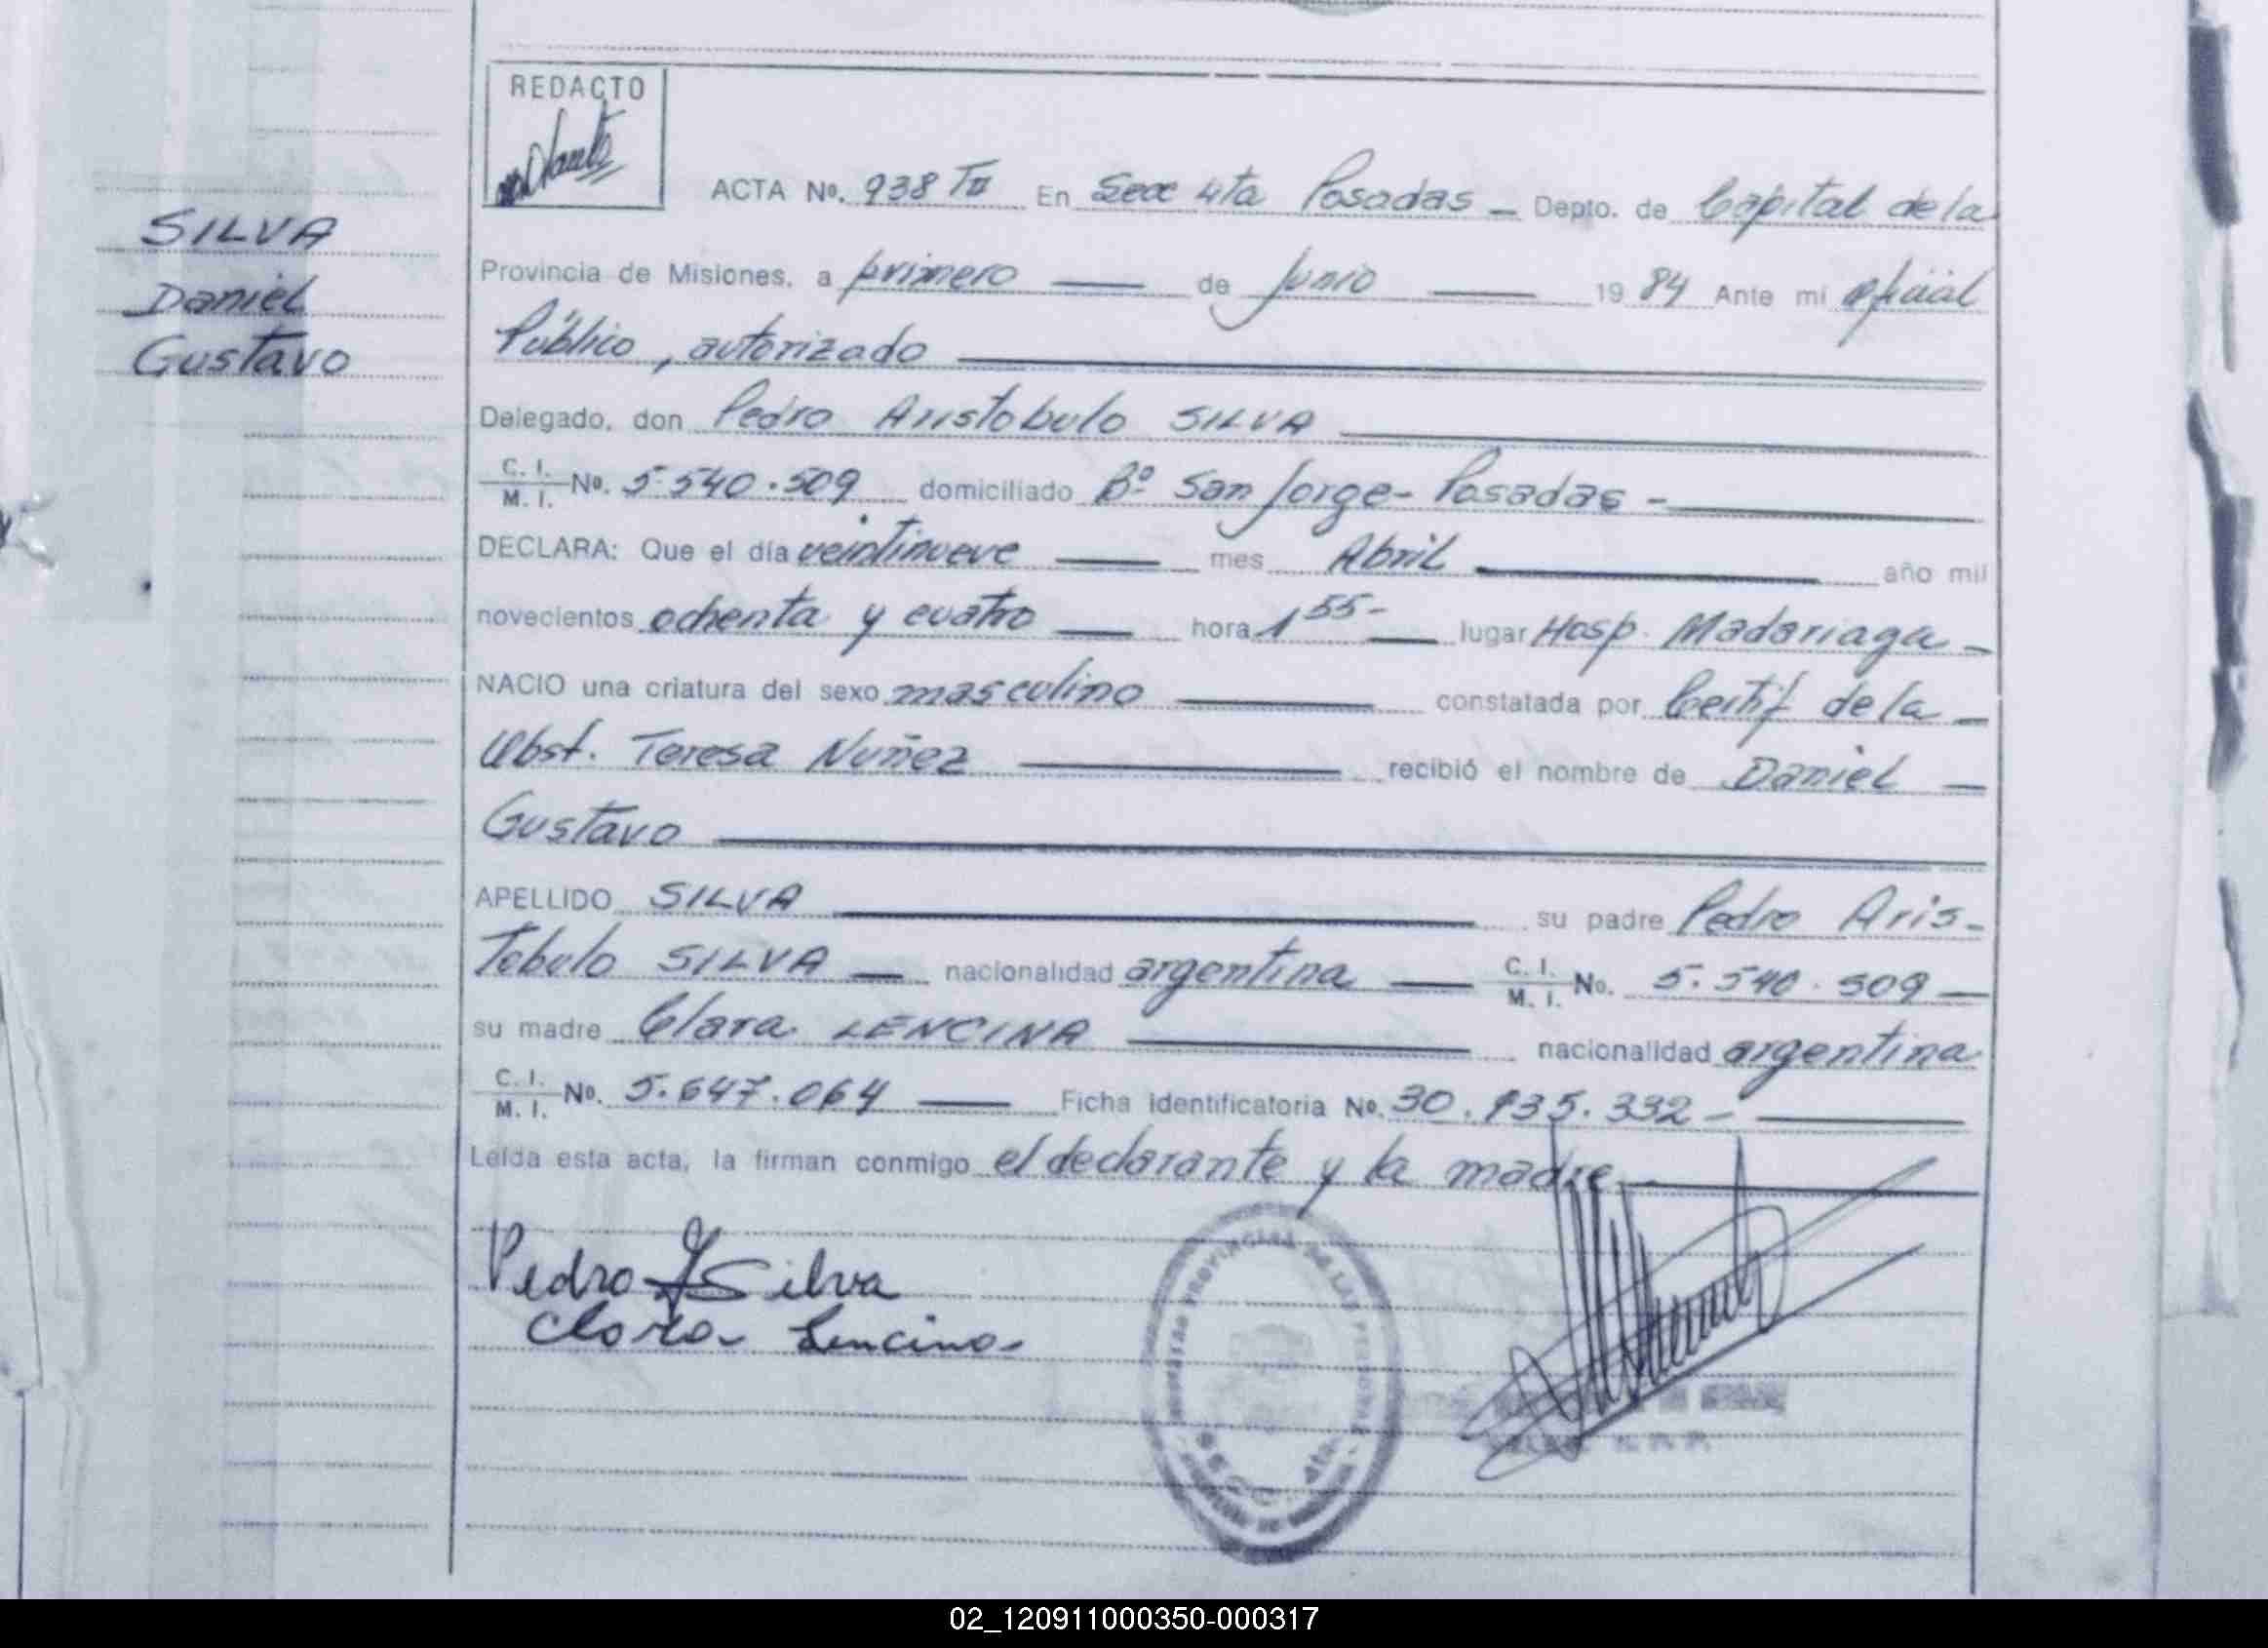 REDACTO
ACTA Nº. 938 TII En Secc 4ta Posadas - Depto. de Capital de la
SILVA
Daniel
Gustavo
Provincia de Misiones, a primero de Junio 1984 Ante mi oficial
Público, autorizado
Delegado, don Pedro Aristobulo SILVA
C. I. / M. I. Nº. 5.540.509 domiciliado Bº San Jorge - Posadas -
DECLARA: Que el día veintinueve mes Abril año mil
novecientos ochenta y cuatro hora 1 55- lugar Hosp. Madariaga -
NACIO una criatura del sexo masculino constatada por Certif de la
Obst. Teresa Nuñez recibió el nombre de Daniel
Gustavo
APELLIDO SILVA su padre Pedro Aris-
tobulo SILVA nacionalidad argentina C. I. / M. I. No. 5.540.509
su madre Clara LENCINA nacionalidad argentina
C. I. / M. I. Nº. 5.647.064 Ficha identificatoria Nº. 30.935.332 -
Leída esta acta, la firman conmigo el declarante y la madre
Pedro A Silva
Clara Lencina
REGISTRO PROVINCIAL DE LAS PERSONAS
02_120911000350-000317